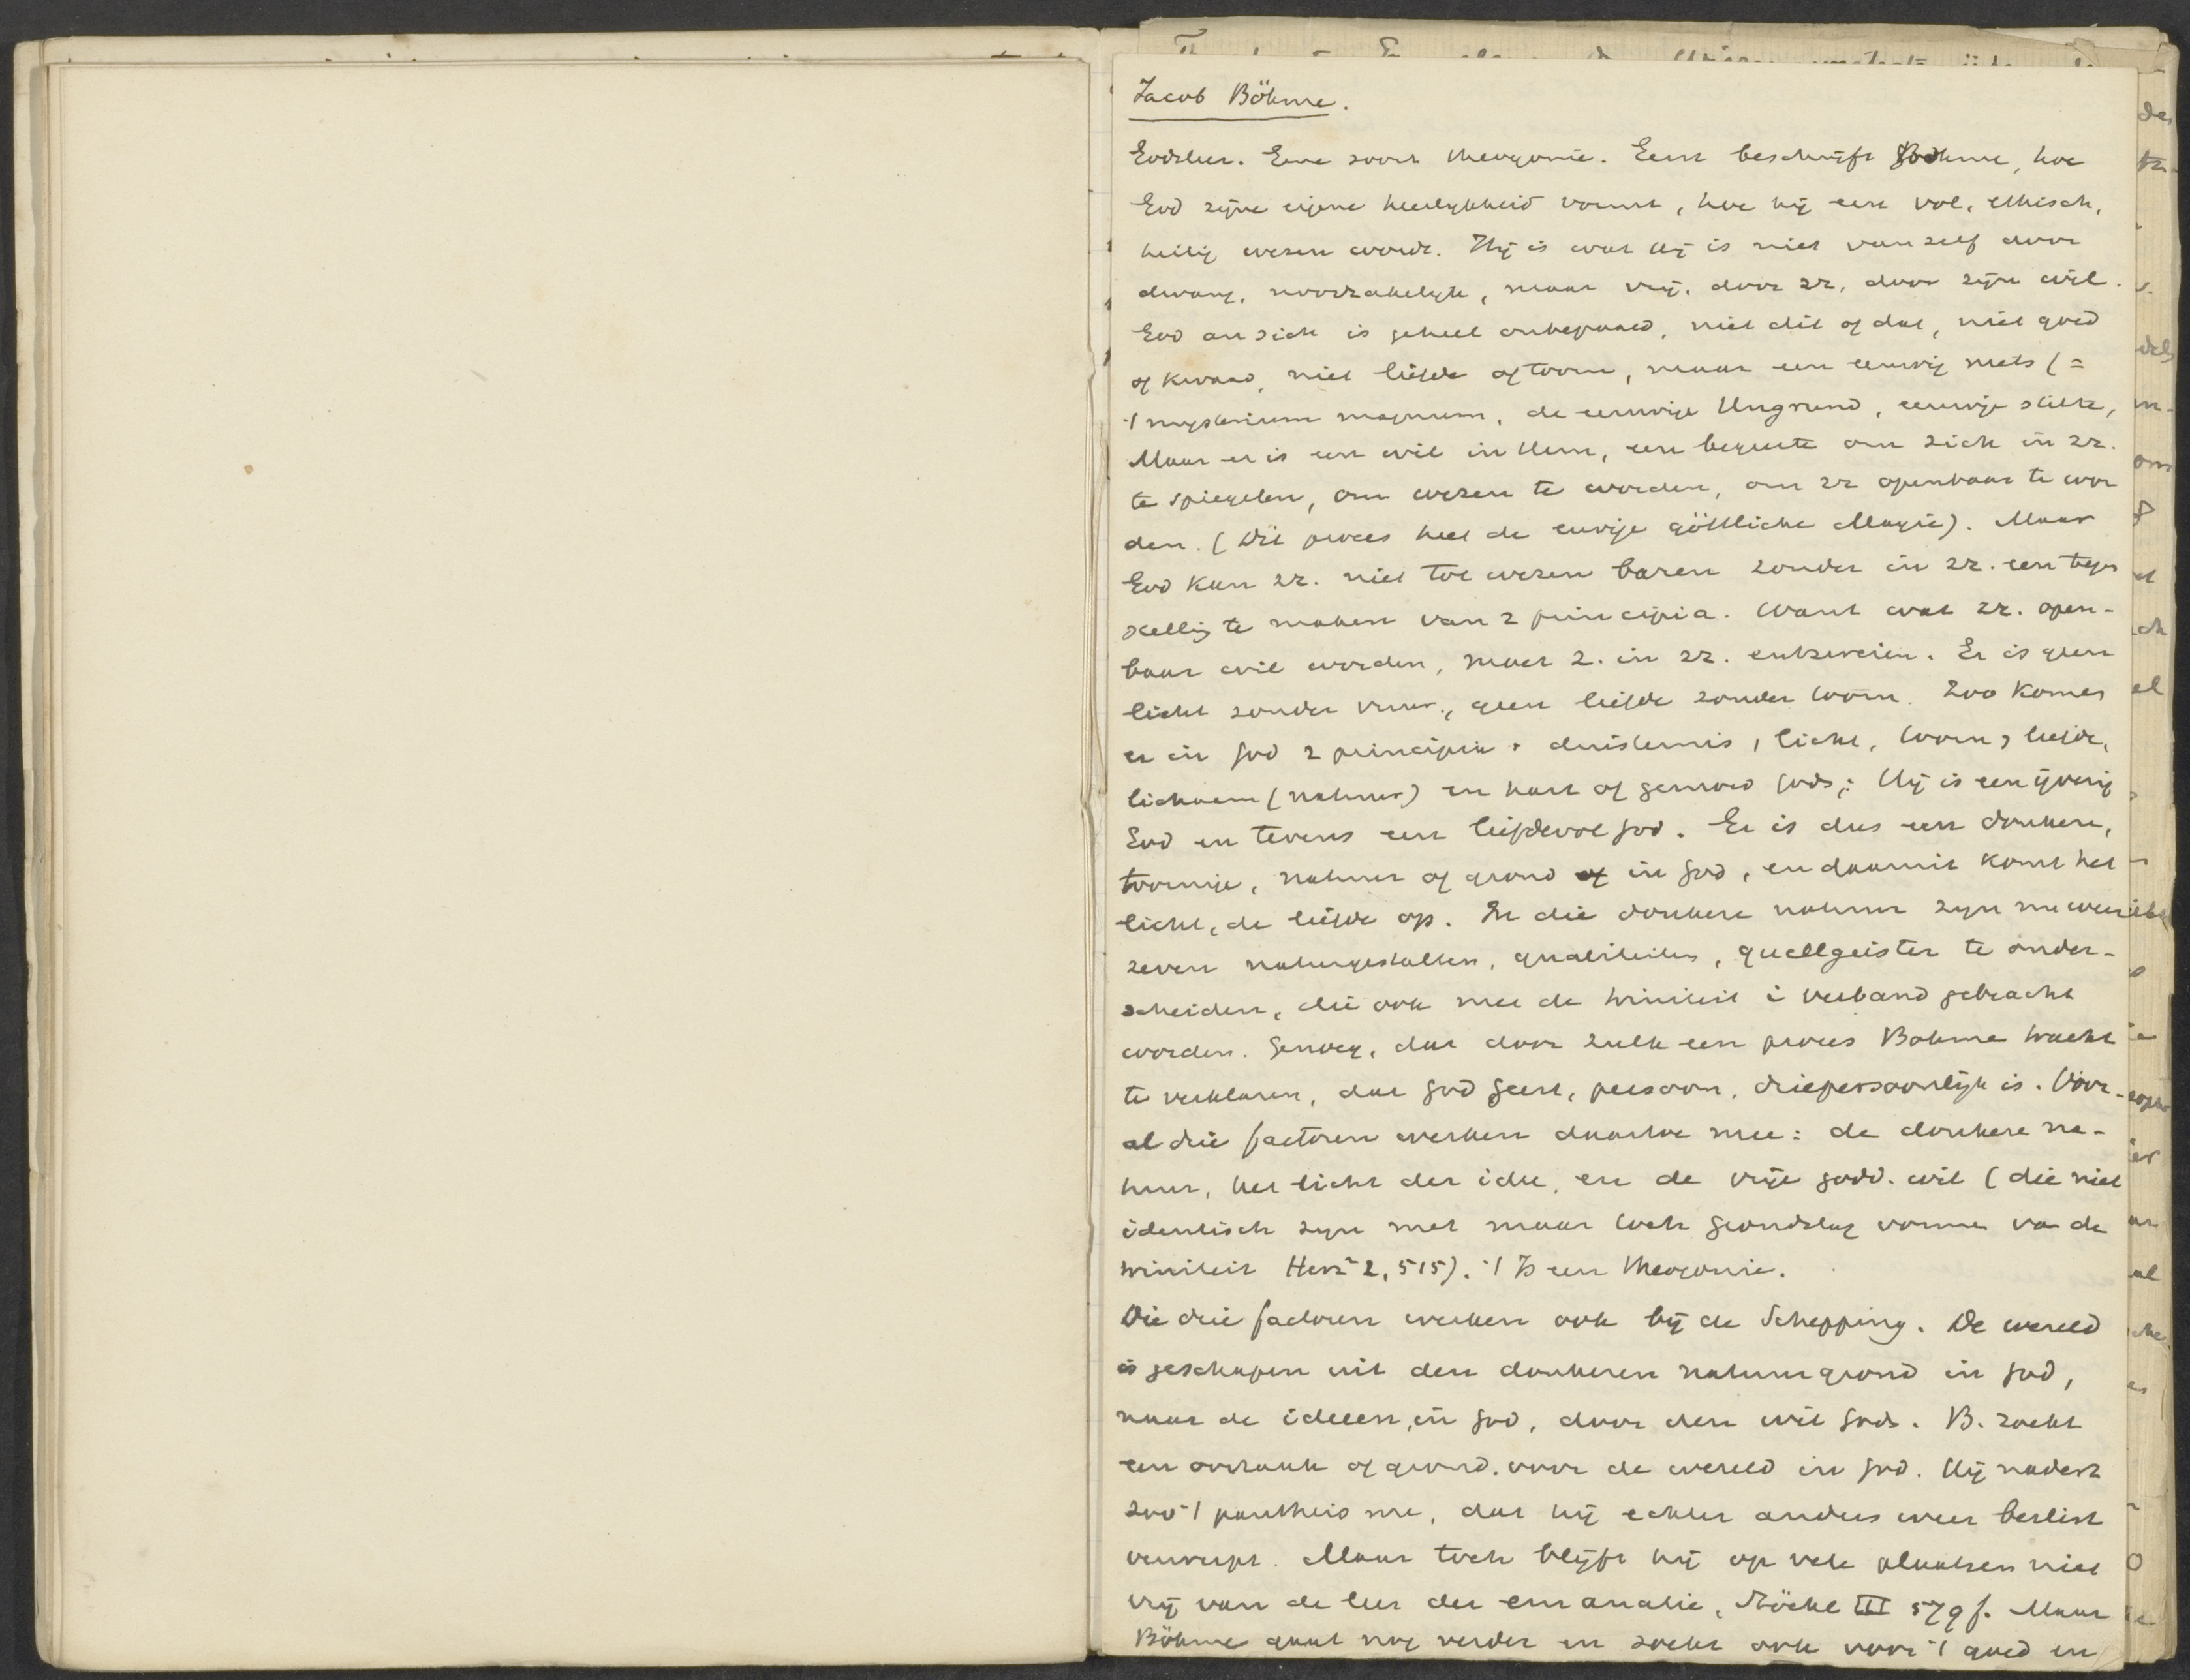 Jacob Böhme.
Godsleer. Eene soort theogonie. Eerst beschrijft Böhme, hoe
God zijne eigene heerlykheid vormt, hoe hij een vol, ethisch,
heilig wezen wordt. Hij is wat Hij is niet vanzelf door
dwang, noodzakelyk, maar vrij, door zr, door zijn wil.
God an sich is geheel onbepaald, niet dit of dat, niet goed
of kwaad, niet liefde of toorn, maar een eeuwig niets (=
't mysterium magnum, de eeuwige Ungrund, eeuwige stilte,
Maar er is een wil in Hem, een begeerte om zich in zr.
te spiegelen, om wezen te worden, om zr openbaar te wor
den. (Dit proces heet de eeuwige göttliche Magie). Maar
God kan zr. niet tot wezen baren zonder in zr. een tegen
stellig te maken van 2 principia. Want wat zr. open-
baar wil worden, moet z. in zr. entzweien. Er is geen
licht zonder vuur, geen liefde zonder toorn. Zoo komen
er in God 2 principia: duisternis, licht, toorn, liefde,
lichaam (natuur) en hart of gemoed Gods; Hij is een ijverig
God en tevens een liefdevol God. Er is dus een donkere,
toornige, natuur of grond of in God, en daaruit komt het
licht, de liefde op. In die donkere natuur zyn nu weer
zeven natuurgestalten, qualiteiten, quellgeister te onder-
scheiden, die ook met de triniteit i verband gebracht
worden. Genoeg, dat door zulk een proces Bohme tracht
te verklaren, dat God geest, persoon, driepersoonlijk is. Voor-
al drie factoren werken daartoe mee: de donkere na-
tuur, het licht der idee, en de vrije godd. wil (die niet
identisch zyn met maar toch grondslag vormen van de
triniteit Herz. 2, 515). 't Is een theogonie.
Die drie factoren werken ook bij de Schepping. De wereld
is geschapen uit den donkeren natuurgrond in God,
naar de ideeen, in God, door den wil Gods. B. zoekt
een oorzaak of grond voor de wereld in God. Hij nadert
zoo 't pantheisme, dat hij echter anders weer beslist
verwerpt. Maar toch blijft hij op vele plaatsen niet
vrij van de leer der emanatie, Stöckl III 579 f. Maar
Böhme gaat nog verder en zoekt ook voor 't goed en